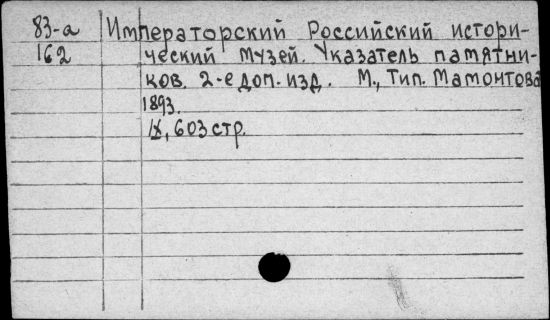 83-а Императорский Российский истори-
162 ческий музей. Указатель памятни-
ков. 2-е доп. изд. М., Тип. Мамонтова
1893.
IX, 603 стр.